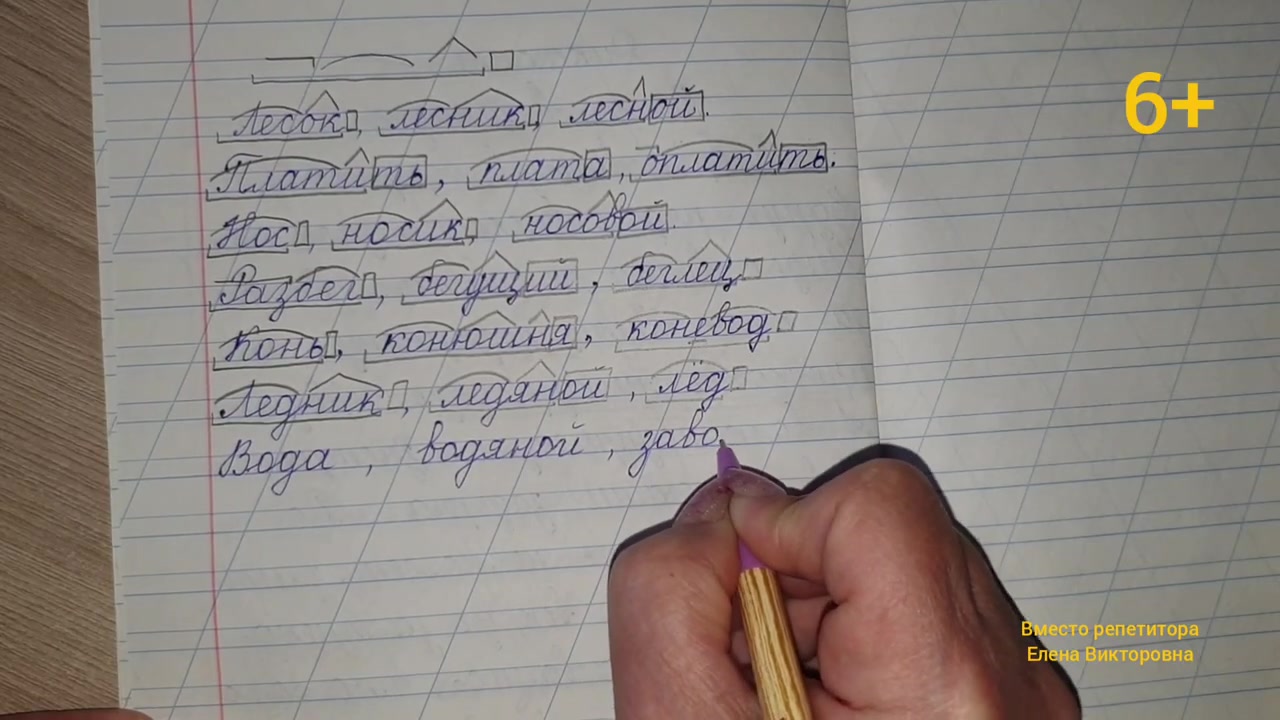 6+
Лесок, лесник, лесной.
Платить, плата, оплатить.
Нос, носик, носовой.
Разбег, бегущий, беглец
Конь, конюшня, коневод
Ледник, ледяной, лёд
Вода, водяной, заво
Вместо репетитора
Елена Викторовна